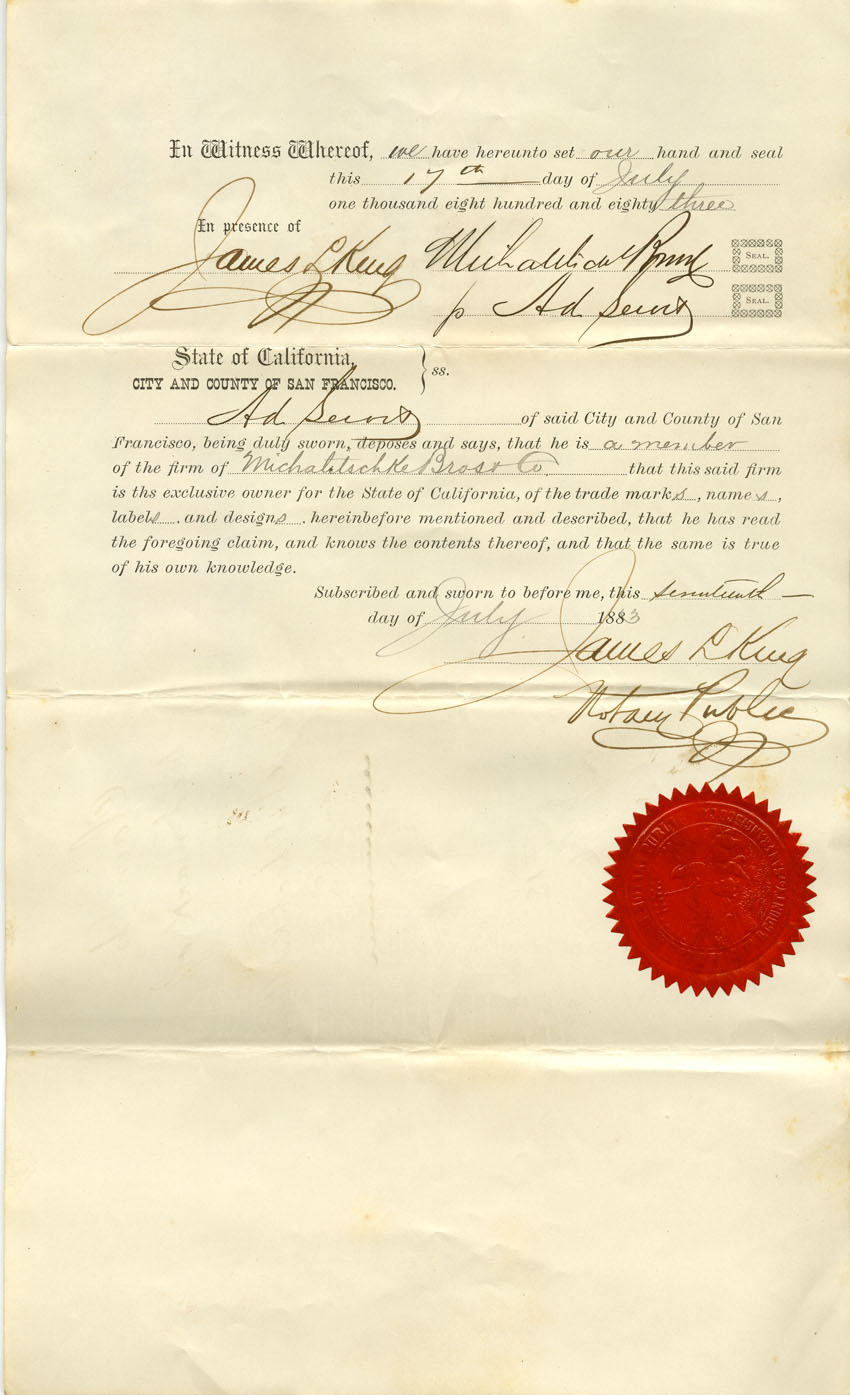 In Witness Whereof, we have hereunto set our hand and seal
this 17th day of July
one thousand eight hundred and eighty three
In presence of
James L King
SEAL.
p Ad
SEAL.
State of California,
CITY AND COUNTY OF SAN FRANCISCO.
} ss.
Ad of said City and County of San
Francisco, being duly sworn, deposes and says, that he is a member
of the firm of Michalitschke Bros & Co that this said firm
is ths exclusive owner for the State of California, of the trade marks, names,
labels and designs hereinbefore mentioned and described, that he has read
the foregoing claim, and knows the contents thereof, and that the same is true
of his own knowledge.
Subscribed and sworn to before me, this seventeenth
day of July 1883
James L King
Notary Public